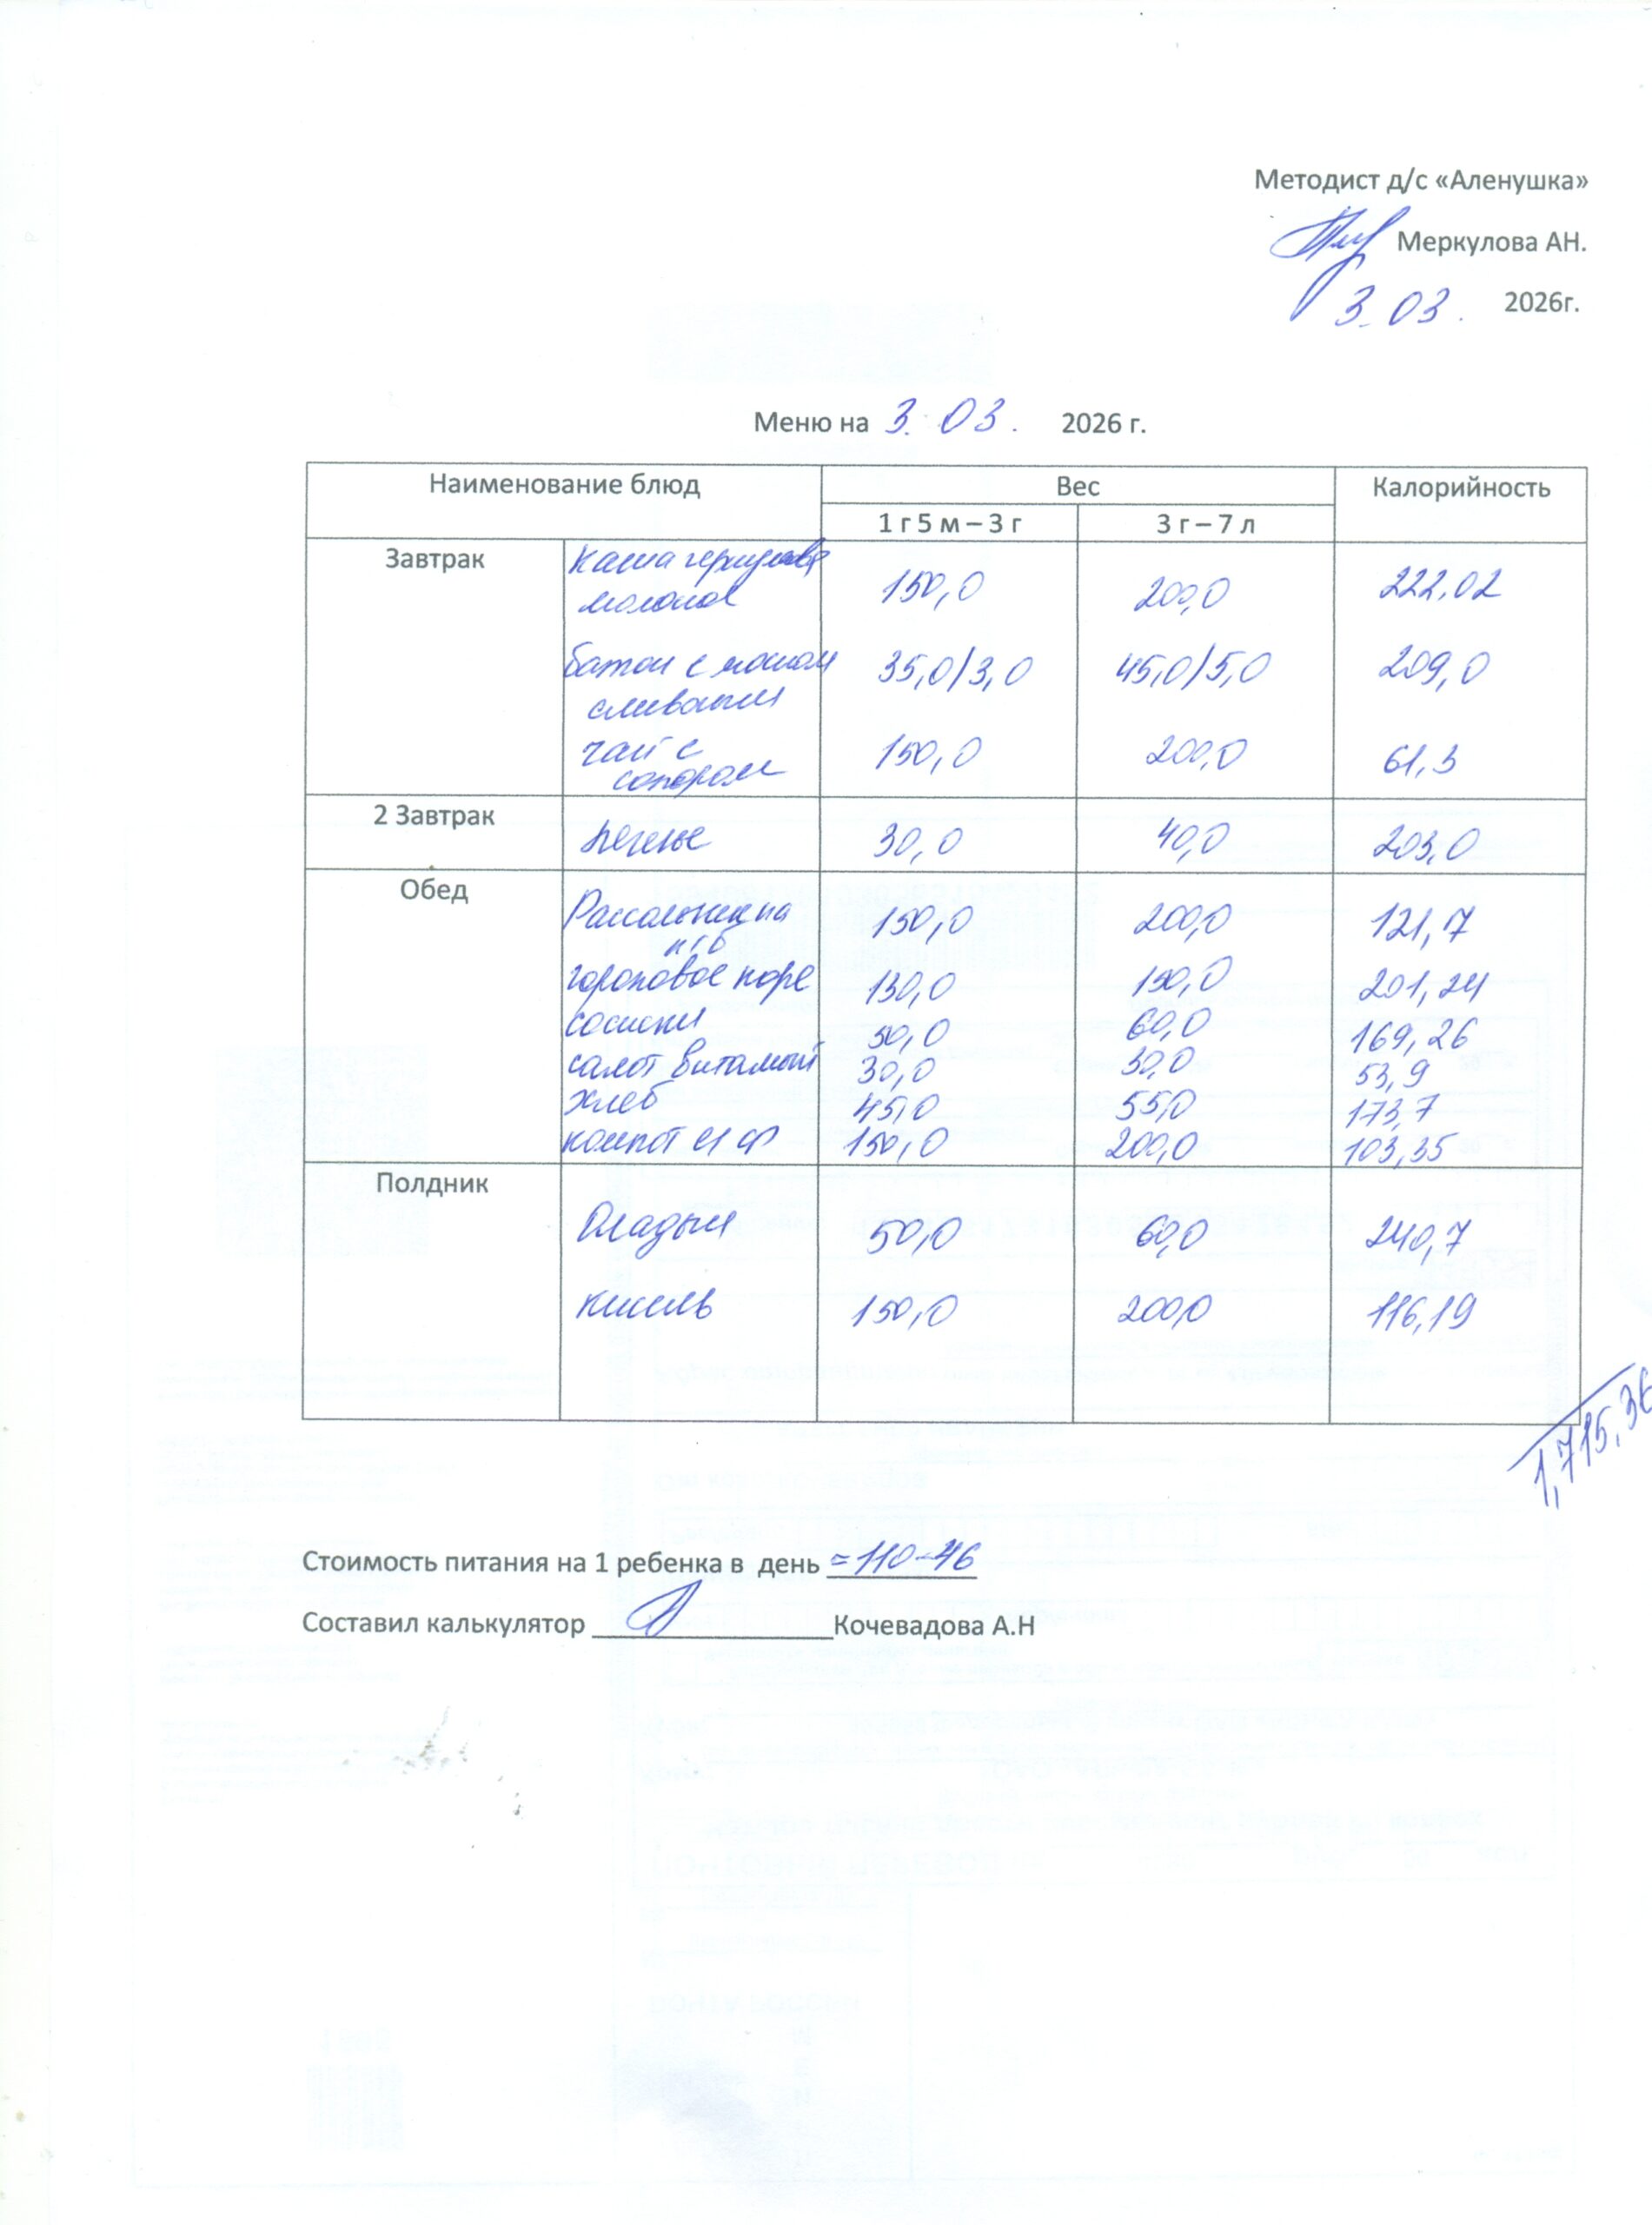 Методист д/с «Аленушка»
Меркулова АН.
3.03. 2026г.
Меню на 3.03. 2026 г.
Наименование блюд Вес Калорийность
1 г 5 м – 3 г 3 г – 7 л
Завтрак Каша
молочная 150,0 200,0 222,02
батон с маслом 35,0/3,0 45,0/5,0 209,0
сливочным
чай с 150,0 200,0 61,3
сахаром
2 Завтрак печенье 30,0 40,0 203,0
Обед Рассольник на 150,0 200,0 121,7
к/б
гороховое пюре 130,0 150,0 201,24
сосиски 50,0 60,0 169,26
салат витамный 30,0 30,0 53,9
хлеб 45,0 55,0 173,7
компот 150,0 200,0 103,35
Полдник Оладьи 50,0 60,0 240,7
кисель 150,0 200,0 116,19
1,715,36
Стоимость питания на 1 ребенка в день =110-46
Составил калькулятор Кочевадова А.Н